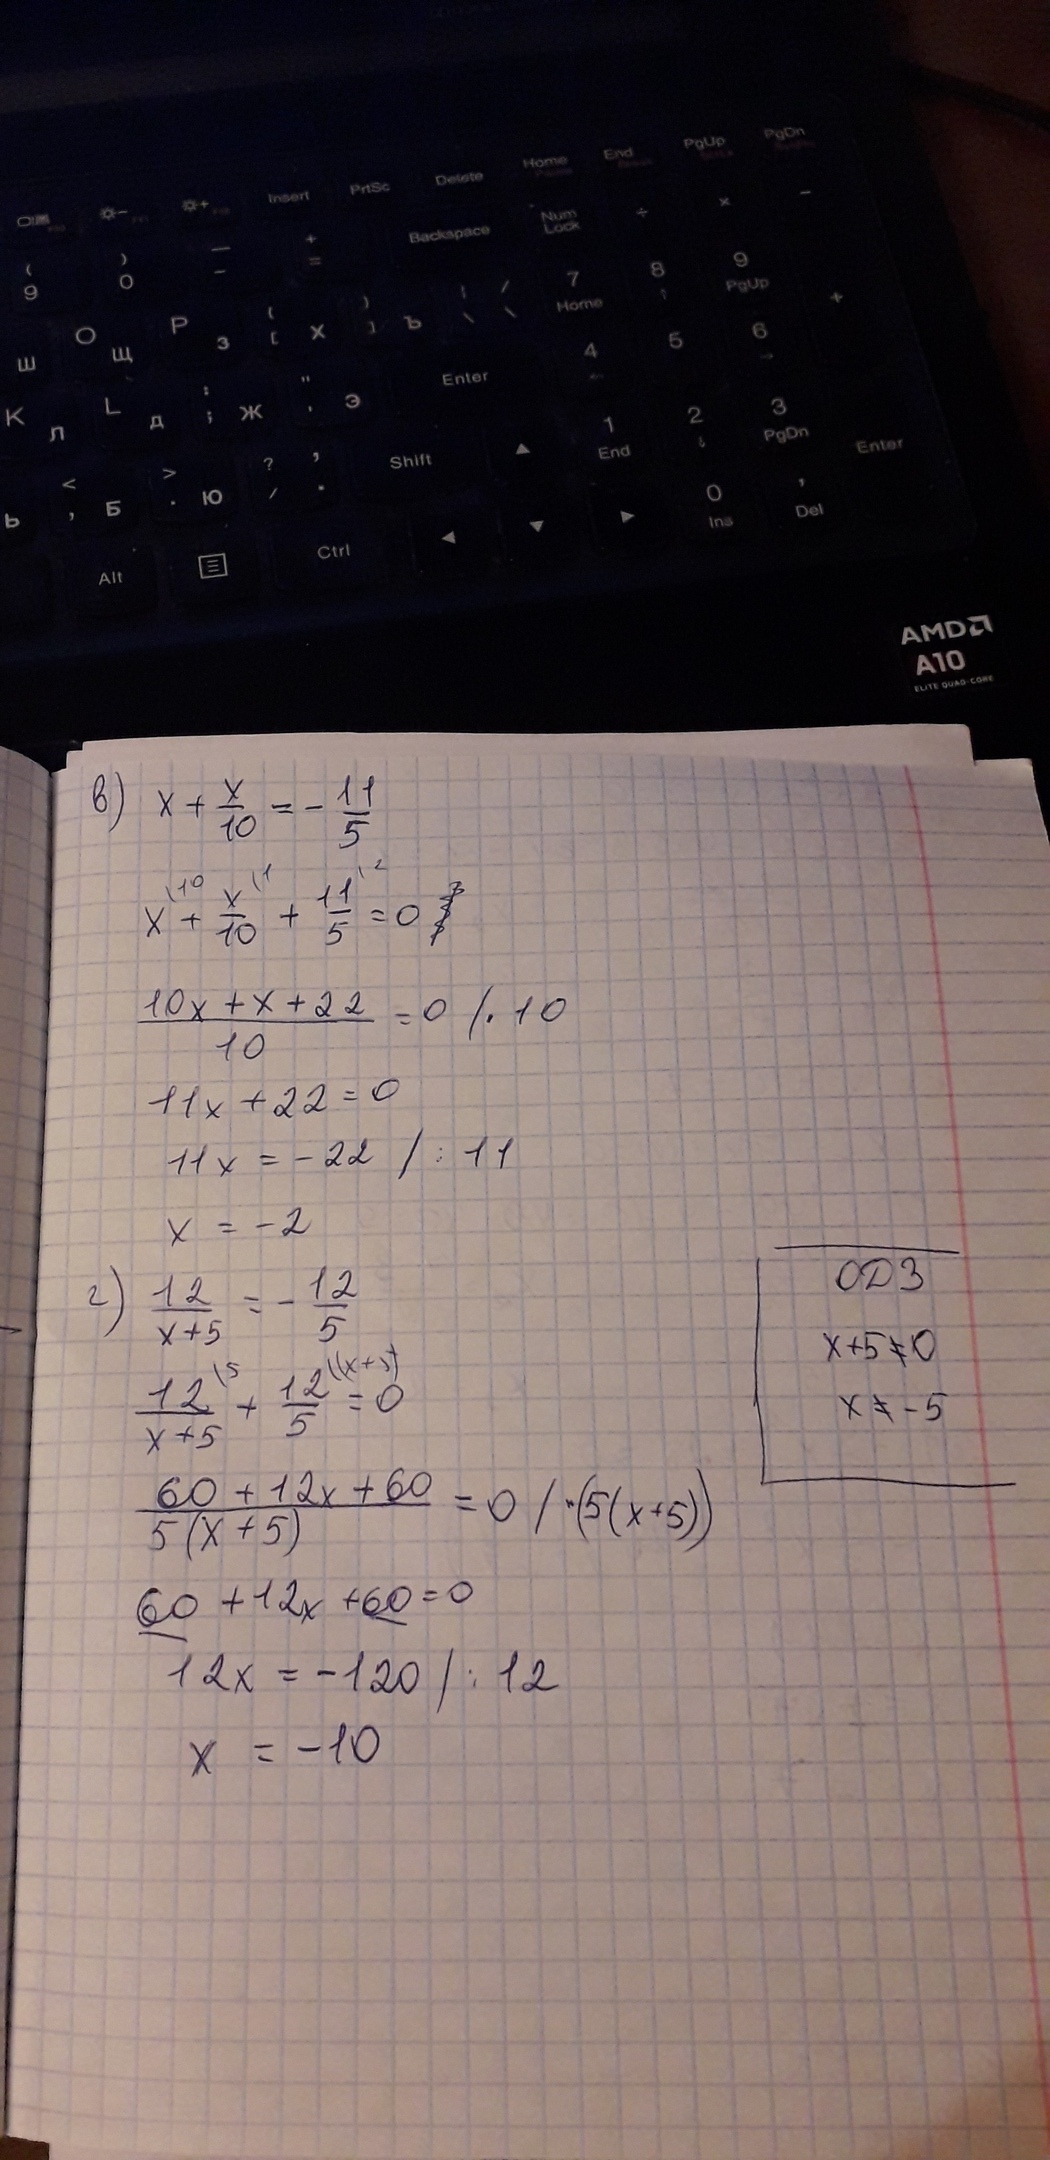 Insert PrtSc Delete Home End PgUp PgDn
( 9 ) 0 — - + = Backspace Num Lock ÷ × −
Ш O Щ P З { [ Х } ] Ъ | \ / \ 7 Home 8 ↑ 9 PgUp +
K Л L Д : ; Ж " ' Э Enter 4 ← 5 6 →
Ь < , Б > . Ю ? / , . Shift ▲ 1 End 2 ↓ 3 PgDn Enter
Alt Ctrl ◄ ▼ ► 0 Ins , Del
AMD
A10
ELITE QUAD-CORE
в) x + x/10 = - 11/5
x\10 + x/10\1 + 11/5\2 = 0
(10x + x + 22)/10 = 0 /· 10
11x + 22 = 0
11x = -22 / : 11
x = -2
г) 12/(x+5) = - 12/5
12/(x+5)\5 + 12/5\(x+5) = 0
(60 + 12x + 60)/(5(x+5)) = 0 / ·(5(x+5))
60 + 12x + 60 = 0
12x = -120 / : 12
x = -10
ОДЗ
x+5≠0
x ≠ -5